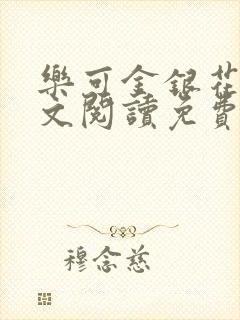 樂可金銀花
文閱讀免費
穆念慈